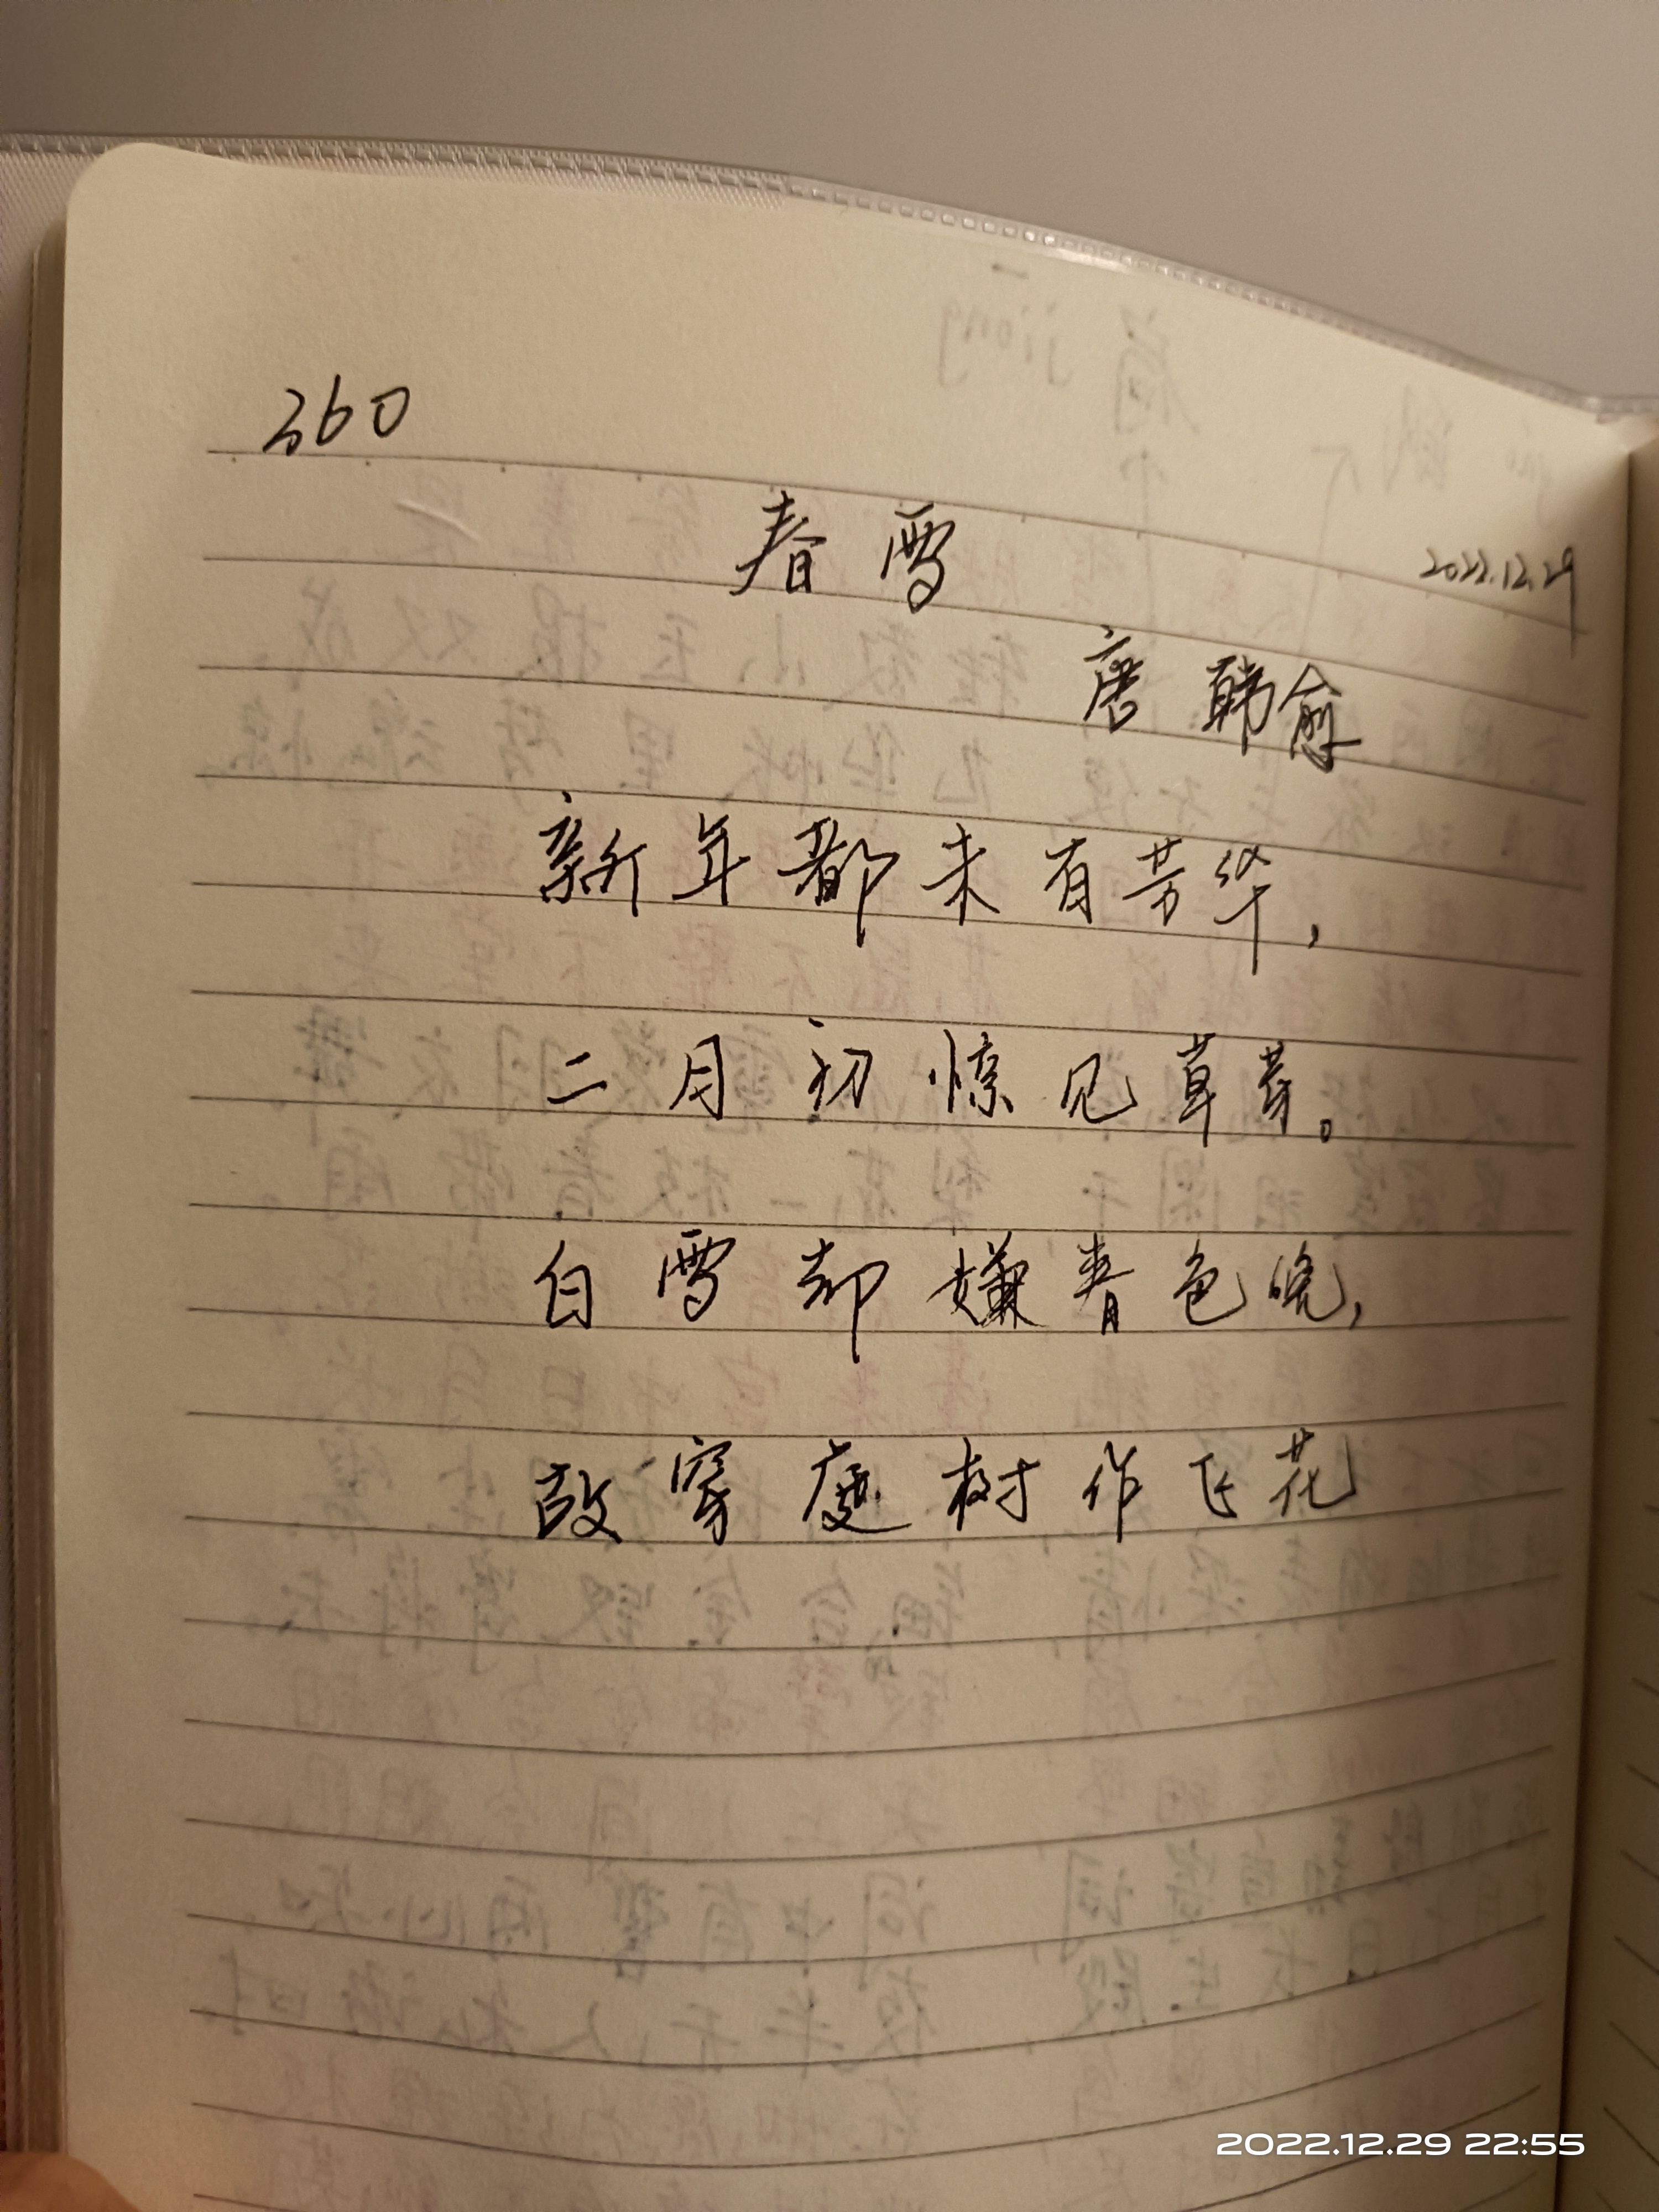 360
春雪
2022.12.29
唐 韩愈
新年都未有芳华，
二月初惊见草芽。
白雪却嫌青色晚，
故穿庭树作飞花
2022.12.29 22:55